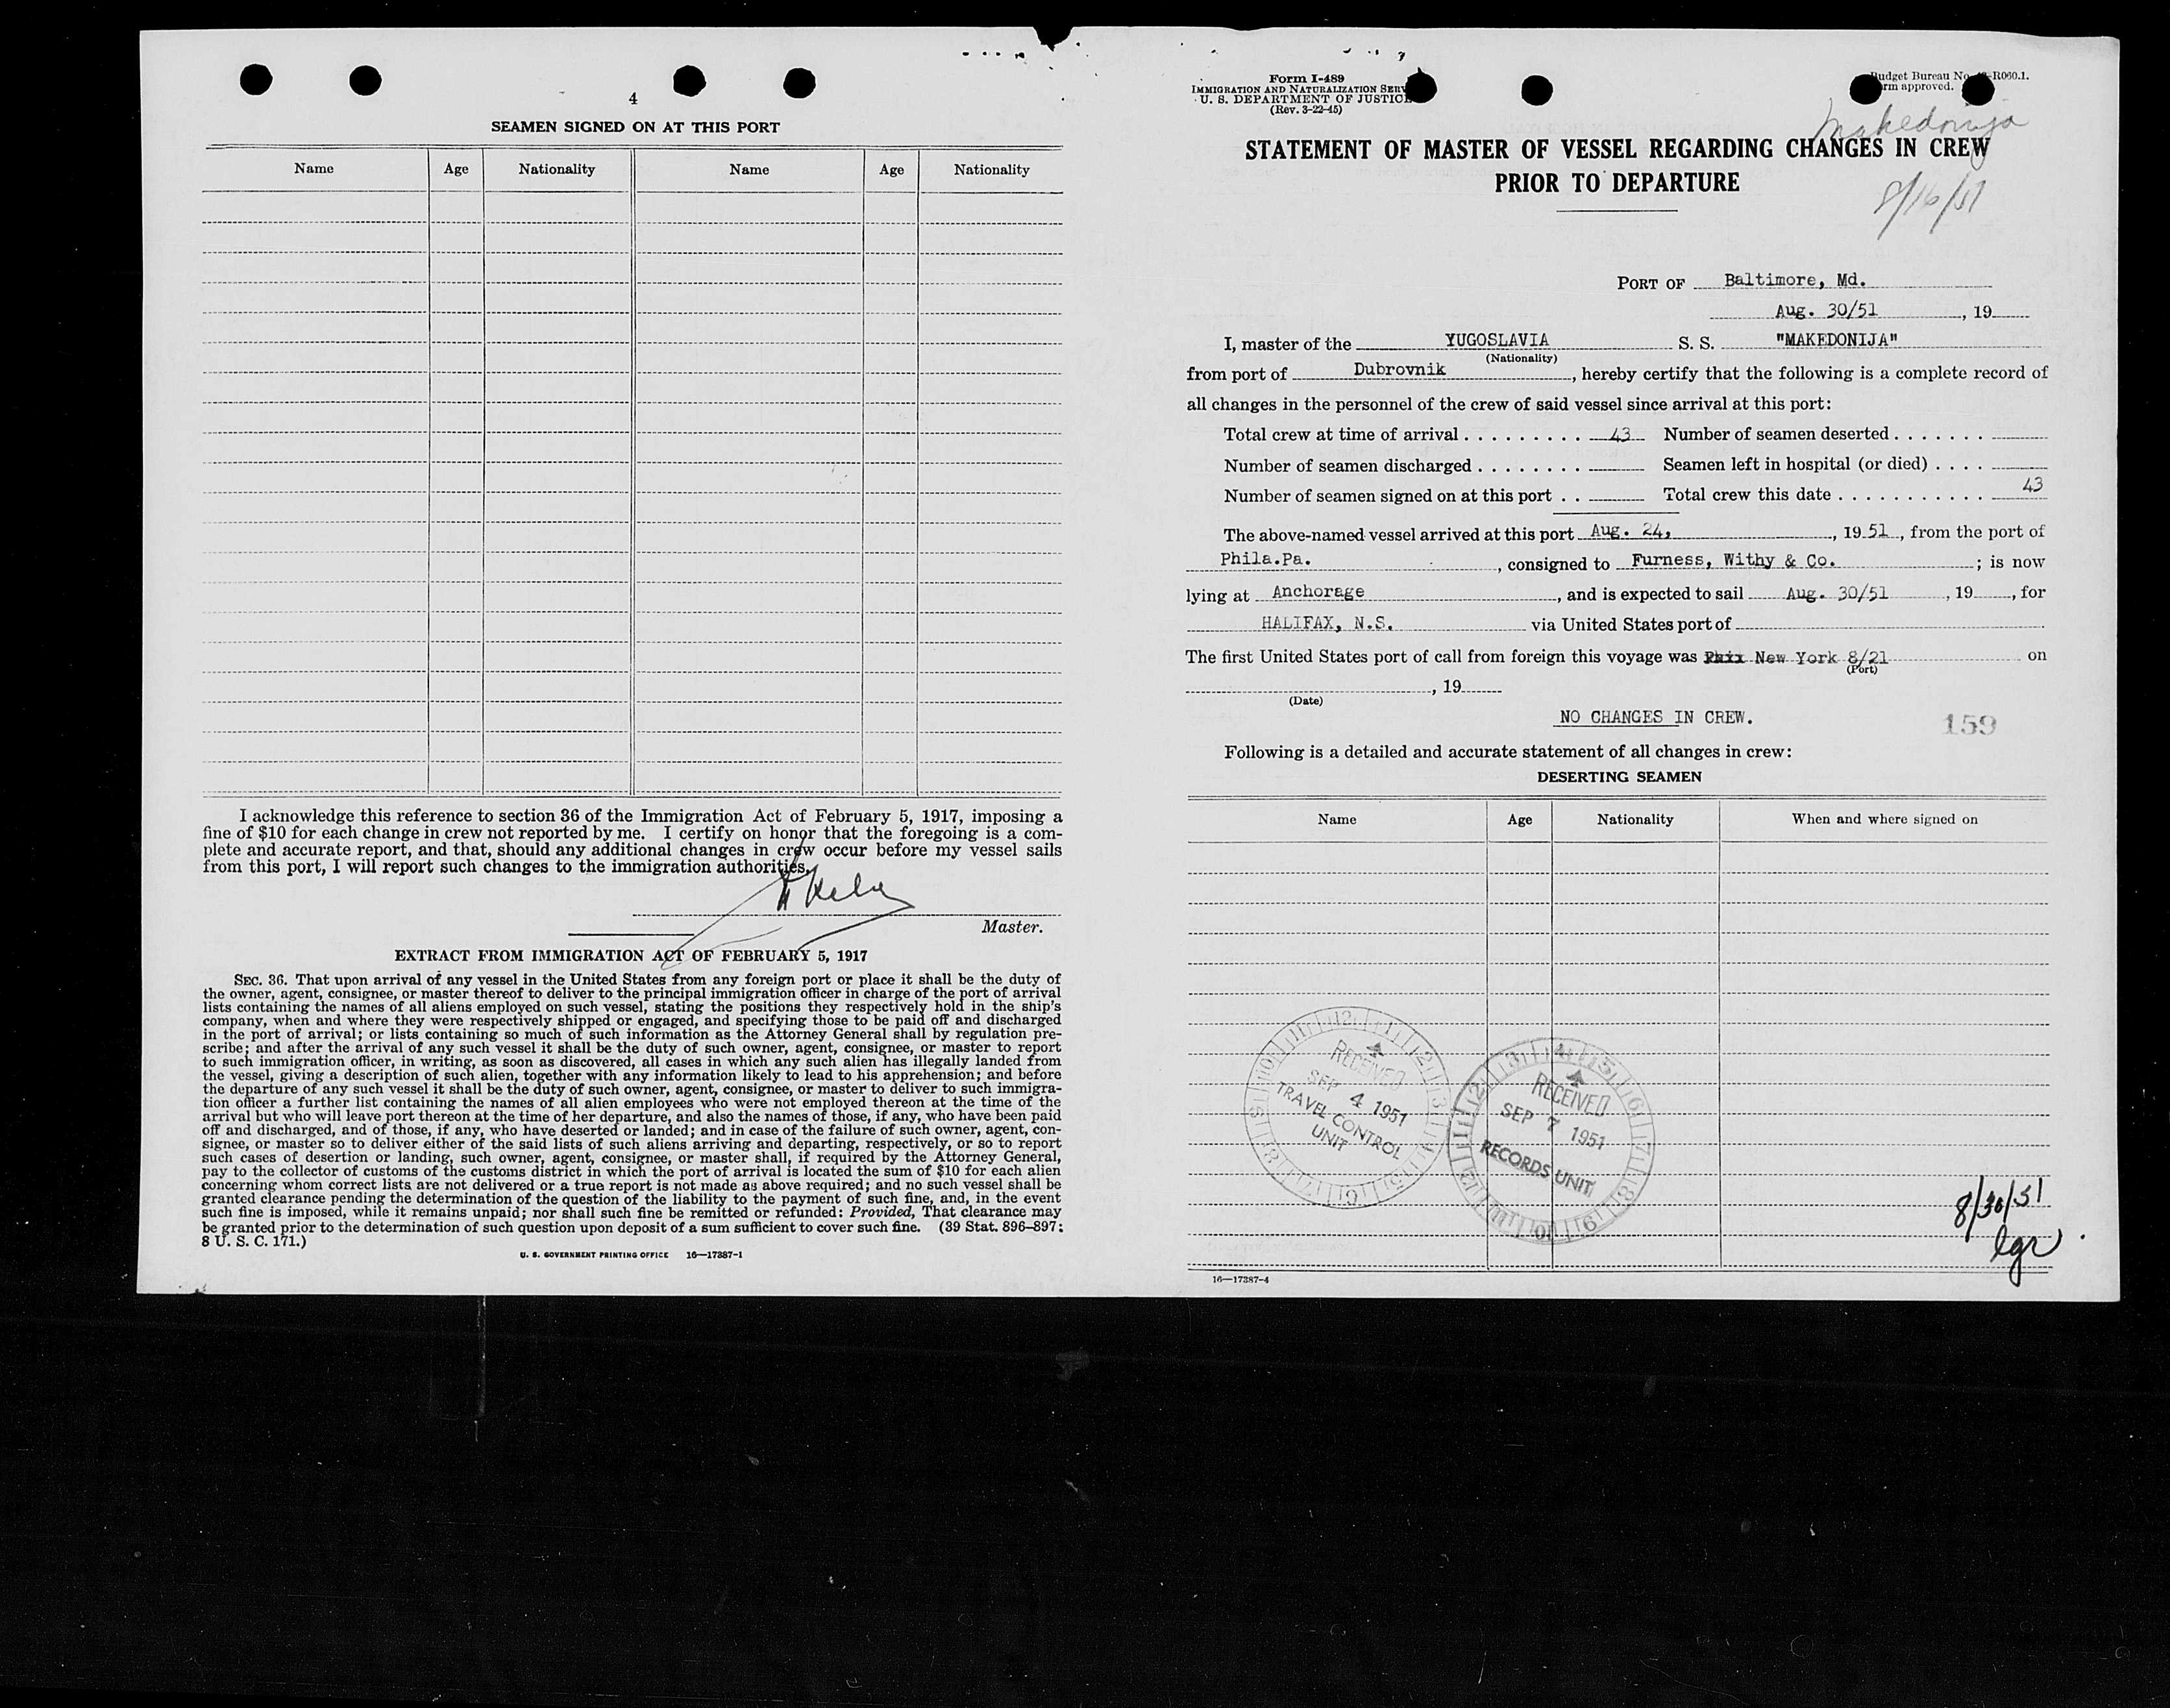 4
SEAMEN SIGNED ON AT THIS PORT
Name Age Nationality Name Age Nationality
I acknowledge this reference to section 36 of the Immigration Act of February 5, 1917, imposing a
fine of $10 for each change in crew not reported by me. I certify on honor that the foregoing is a com-
plete and accurate report, and that, should any additional changes in crew occur before my vessel sails
from this port, I will report such changes to the immigration authorities.
Master.
EXTRACT FROM IMMIGRATION ACT OF FEBRUARY 5, 1917
SEC. 36. That upon arrival of any vessel in the United States from any foreign port or place it shall be the duty of
the owner, agent, consignee, or master thereof to deliver to the principal immigration officer in charge of the port of arrival
lists containing the names of all aliens employed on such vessel, stating the positions they respectively hold in the ship's
company, when and where they were respectively shipped or engaged, and specifying those to be paid off and discharged
in the port of arrival; or lists containing so much of such information as the Attorney General shall by regulation pre-
scribe; and after the arrival of any such vessel it shall be the duty of such owner, agent, consignee, or master to report
to such immigration officer, in writing, as soon as discovered, all cases in which any such alien has illegally landed from
the vessel, giving a description of such alien, together with any information likely to lead to his apprehension; and before
the departure of any such vessel it shall be the duty of such owner, agent, consignee, or master to deliver to such immigra-
tion officer a further list containing the names of all alien employees who were not employed thereon at the time of the
arrival but who will leave port thereon at the time of her departure, and also the names of those, if any, who have been paid
off and discharged, and of those, if any, who have deserted or landed; and in case of the failure of such owner, agent, con-
signee, or master so to deliver either of the said lists of such aliens arriving and departing, respectively, or so to report
such cases of desertion or landing, such owner, agent, consignee, or master shall, if required by the Attorney General,
pay to the collector of customs of the customs district in which the port of arrival is located the sum of $10 for each alien
concerning whom correct lists are not delivered or a true report is not made as above required; and no such vessel shall be
granted clearance pending the determination of the question of the liability to the payment of such fine, and, in the event
such fine is imposed, while it remains unpaid; nor shall such fine be remitted or refunded: Provided, That clearance may
be granted prior to the determination of such question upon deposit of a sum sufficient to cover such fine. (39 Stat. 896–897;
8 U. S. C. 171.)
U. S. GOVERNMENT PRINTING OFFICE 16—17387-1
Form I-489
IMMIGRATION AND NATURALIZATION SERV
U. S. DEPARTMENT OF JUSTICE
(Rev. 3-22-45)
udget Bureau No. R060.1.
rm approved.
Makedonija
8/16/51
STATEMENT OF MASTER OF VESSEL REGARDING CHANGES IN CREW
PRIOR TO DEPARTURE
PORT OF Baltimore, Md.
Aug. 30/51, 19
I, master of the YUGOSLAVIA S. S. "MAKEDONIJA"
(Nationality)
from port of Dubrovnik, hereby certify that the following is a complete record of
all changes in the personnel of the crew of said vessel since arrival at this port:
Total crew at time of arrival . . . . . . . . . 43 Number of seamen deserted . . . . . . .
Number of seamen discharged . . . . . . . . Seamen left in hospital (or died) . . . .
Number of seamen signed on at this port . . Total crew this date . . . . . . . . . . . 43
The above-named vessel arrived at this port Aug. 24, , 1951, from the port of
Phila.Pa. , consigned to Furness, Withy & Co. ; is now
lying at Anchorage , and is expected to sail Aug. 30/51 , 19 , for
HALIFAX, N.S. via United States port of
The first United States port of call from foreign this voyage was New York 8/21 on
(Port)
, 19
(Date)
NO CHANGES IN CREW.
159
Following is a detailed and accurate statement of all changes in crew:
DESERTING SEAMEN
Name Age Nationality When and where signed on
RECEIVED
SEP 4 1951
TRAVEL CONTROL
UNIT
RECEIVED
SEP 7 1951
RECORDS UNIT
8/30/51
lgr
16—17387-4